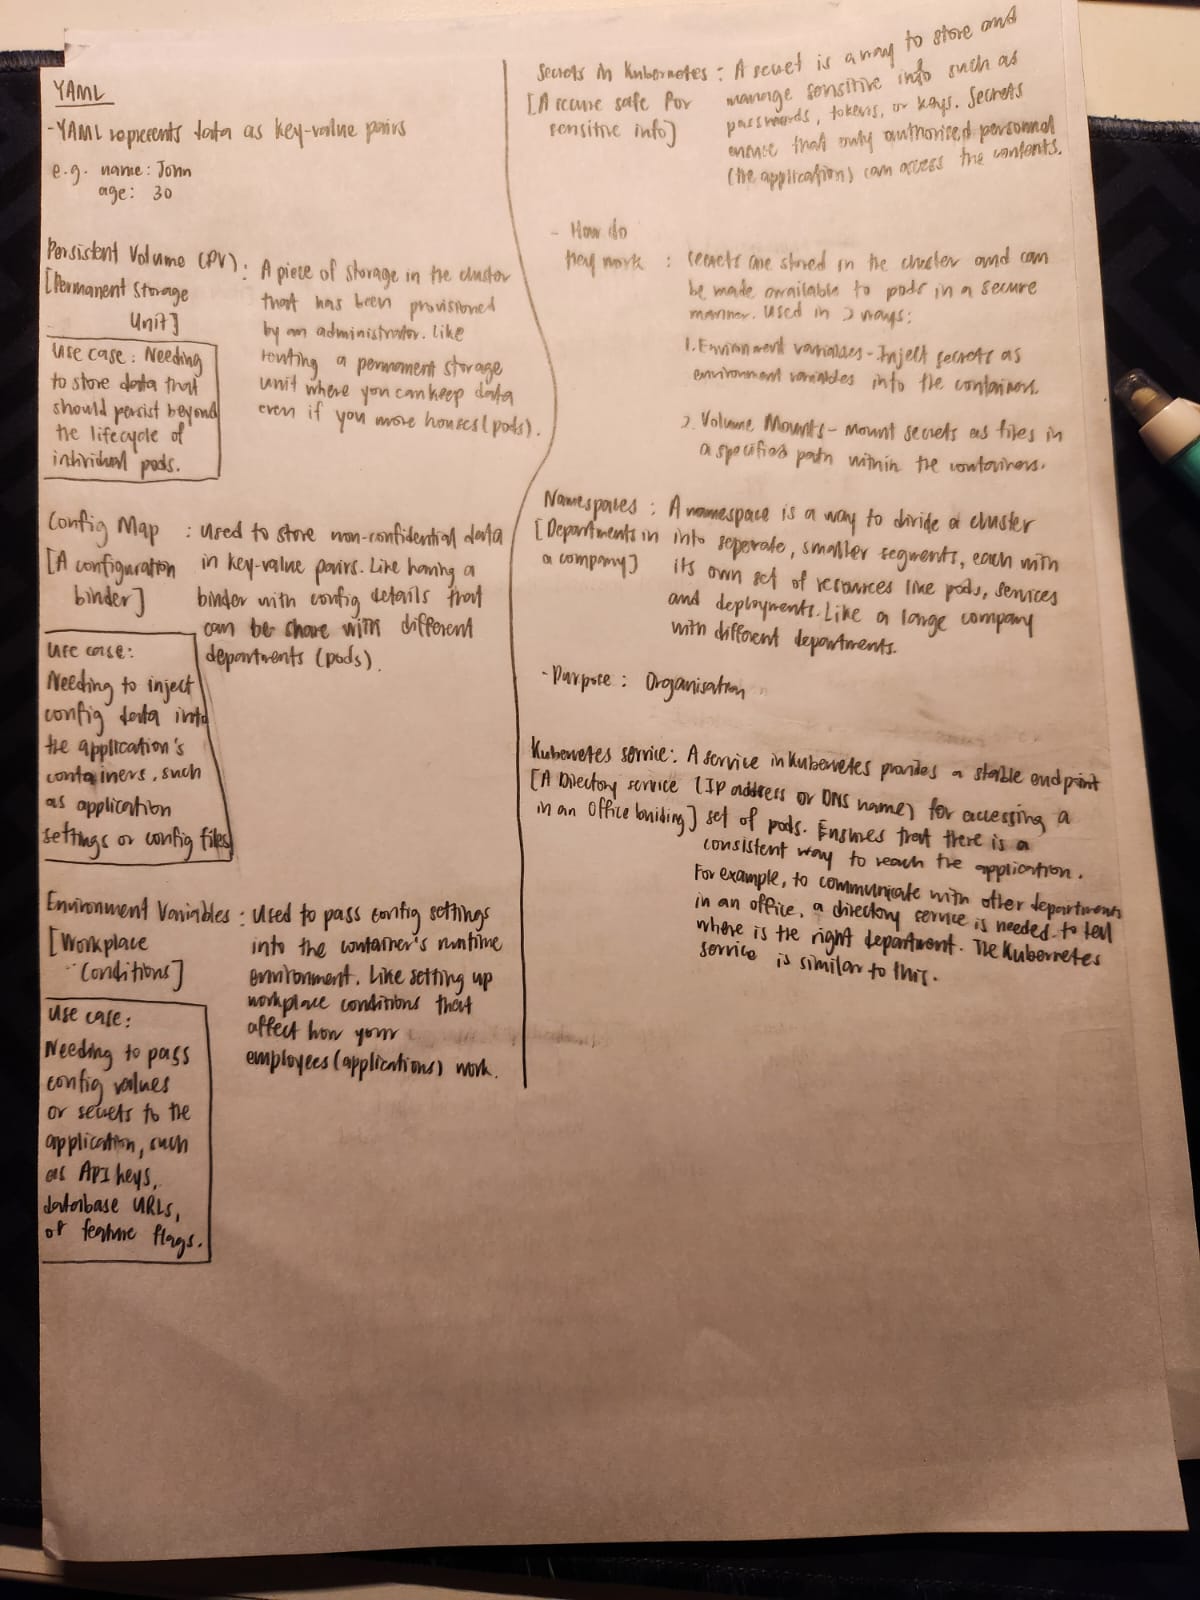 YAML
- YAML represents data as key-value pairs
e.g. name: John
age: 30
Persistent Volume (PV) :
[Permanent Storage
Unit]
A piece of storage in the cluster
that has been provisioned
by an administrator. Like
renting a permanent storage
unit where you can keep data
even if you move houses (pods).
Use case: Needing
to store data that
should persist beyond
the lifecycle of
individual pods.
Config Map :
[A configuration
binder]
Used to store non-confidential data
in key-value pairs. Like having a
binder with config details that
can be share with different
departments (pods).
Use case:
Needing to inject
config data into
the application's
containers, such
as application
settings or config files
Environment Variables :
[Workplace
Conditions]
Used to pass config settings
into the container's runtime
environment. Like setting up
workplace conditions that
affect how your
employees (applications) work.
Use case:
Needing to pass
config values
or secrets to the
application, such
as API keys,
database URLs,
or feature flags.
Secrets in Kubernetes :
[A secure safe for
sensitive info]
A secret is a way to store and
manage sensitive info such as
passwords, tokens, or keys. Secrets
ensure that only authorised personnel
(the application) can access the contents.
- How do
they work :
Secrets are stored in the cluster and can
be made available to pods in a secure
manner. Used in 2 ways:
1. Environment variables - Inject secrets as
environment variables into the containers.
2. Volume Mounts - mount secrets as files in
a specified path within the containers.
Namespaces :
[Departments in
a company]
A namespace is a way to divide a cluster
into seperate, smaller segments, each with
its own set of resources like pods, services
and deployments. Like a large company
with different departments.
- Purpose : Organisation
Kubernetes service :
[A Directory service
in an Office building]
A service in Kubernetes provides a stable endpoint
(IP address or DNS name) for accessing a
set of pods. Ensures that there is a
consistent way to reach the application.
For example, to communicate with other departments
in an office, a directory service is needed to tell
where is the right department. The Kubernetes
service is similar to this.